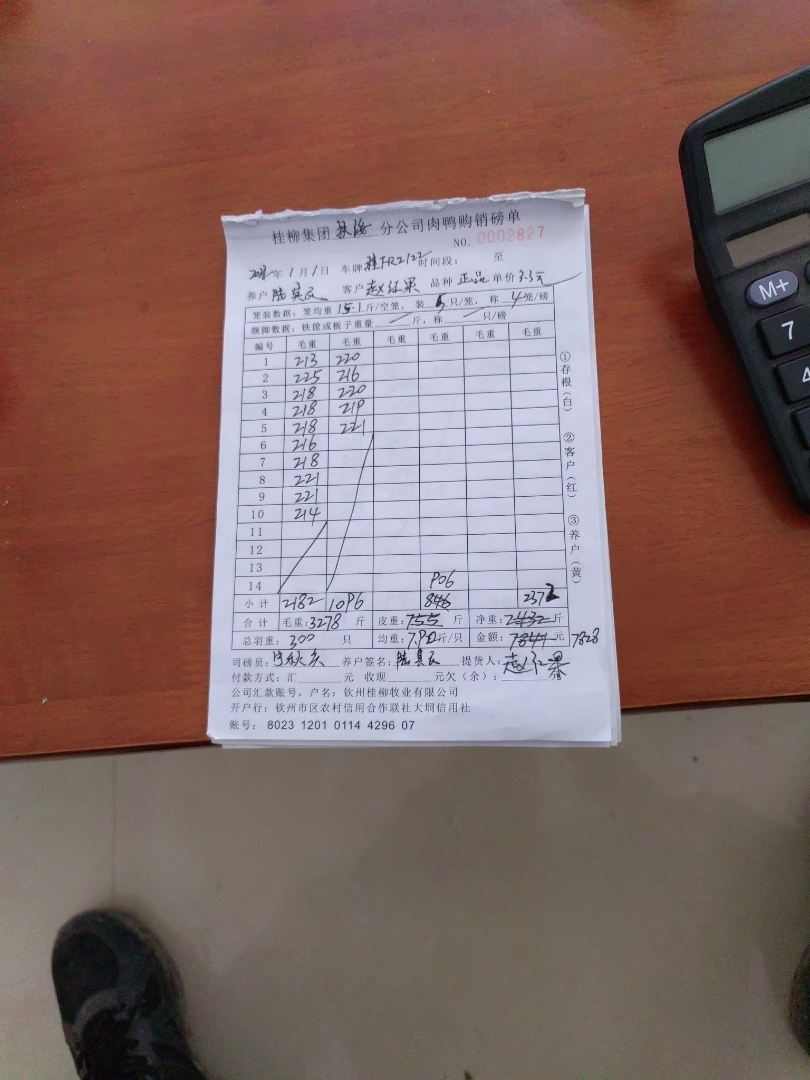 桂柳集团 分公司肉鸭购销磅单
NO. 0002827
年 1 月 1 日 车牌 桂FR2122 时间段： 至
养户 陆真 客户 赵红果 品种 正品 单价 3.3元
笼装数据：笼均重 15.1 斤/空笼，装 5 只/笼，称 4 笼/磅
捆脚数据：铁筐或板子重量 — 斤，称 — 只/磅
编号 毛重 毛重 毛重 毛重 毛重 毛重
1 213 220
2 225 216
3 218 220
4 218 219
5 218 221
6 216
7 218
8 221
9 221
10 214
11
12
13
14 906
小计 2182 1096 846 2372
合计 毛重：3278 斤 皮重：755 斤 净重：2432 斤
总羽重： 300 只 均重：7.90斤/只 金额：7841 元 7828
司磅员： 养户签名：陆真 提货人：赵红果
付款方式：汇 元 收现 元欠（余）：
公司汇款账号，户名：钦州桂柳牧业有限公司
开户行：钦州市区农村信用合作联社大垌信用社
账号： 8023 1201 0114 4296 07
①存根（白）
②客户（红）
③养户（黄）
M+
7
4